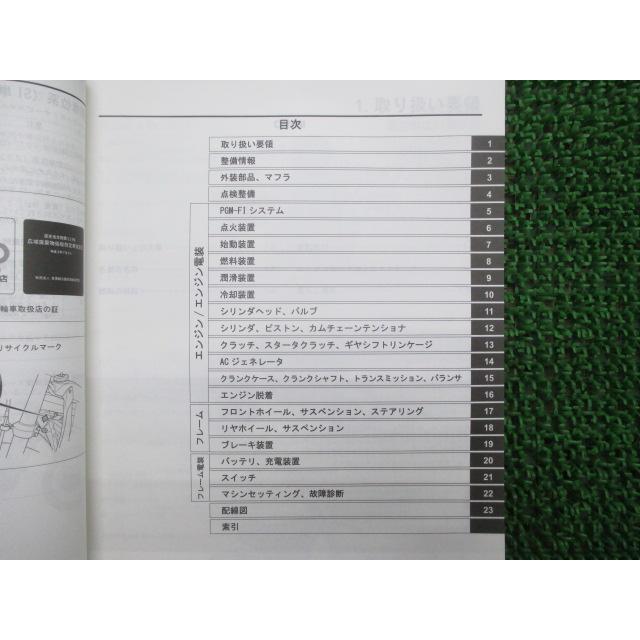 1. 取り扱い要領
目次
取り扱い要領 1
整備情報 2
外装部品、マフラ 3
点検整備 4
エンジン/エンジン電装
PGM-FI システム 5
点火装置 6
始動装置 7
燃料装置 8
潤滑装置 9
冷却装置 10
シリンダヘッド、バルブ 11
シリンダ、ピストン、カムチェーンテンショナ 12
クラッチ、スタータクラッチ、ギヤシフトリンケージ 13
AC ジェネレータ 14
クランクケース、クランクシャフト、トランスミッション、バランサ 15
エンジン脱着 16
フレーム
フロントホイール、サスペンション、ステアリング 17
リヤホイール、サスペンション 18
ブレーキ装置 19
フレーム電装
バッテリ、充電装置 20
スイッチ 21
マシンセッティング、故障診断 22
配線図 23
索引
輪車取扱店の証
リサイクルマーク